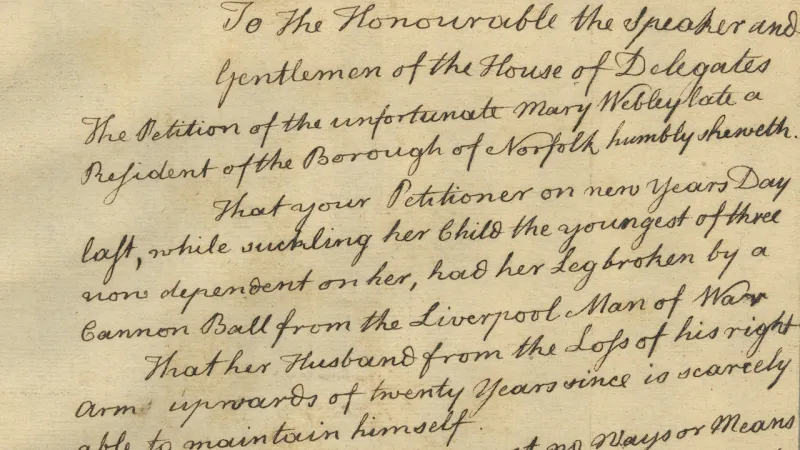 To the Honourable the Speaker and
Gentlemen of the House of Delegates
The Petition of the unfortunate Mary Webley late a
Resident of the Borough of Norfolk humbly sheweth.
That your Petitioner on new Years Day
last, while suckling her Child the youngest of three
now dependent on her, had her Leg broken by a
Cannon Ball from the Liverpool Man of War
That her Husband from the Loss of his right
Arm upwards of twenty Years since is scarcely
able to maintain himself.
no Ways or Means